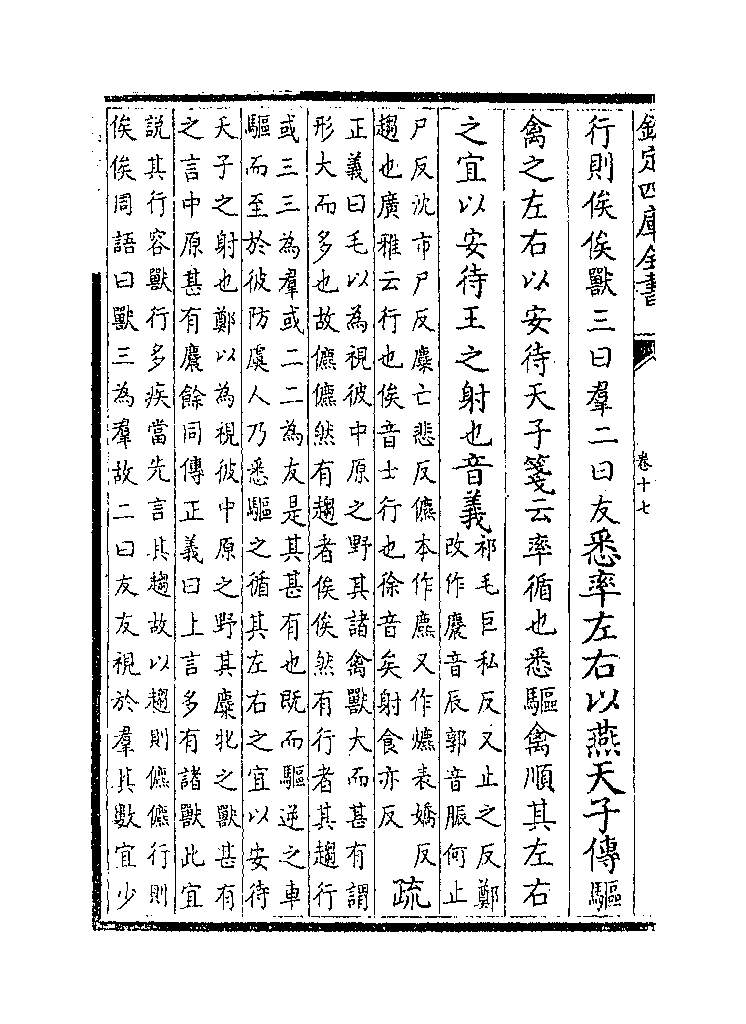 欽定四庫全書
卷十七
行則俟俟獸三曰羣二曰友悉率左右以燕天子傳驅
禽之左右以安待天子箋云率循也悉驅禽順其左右
之宜以安待王之射也音義
祁毛巨私反又止之反鄭
改作麎音辰郭音脤何止
尸反沈市尸反麋亡悲反儦本作麃又作爊表嬌反
趨也廣雅云行也俟音士行也徐音矣射食亦反
疏
正義曰毛以為視彼中原之野其諸禽獸大而甚有謂
形大而多也故儦儦然有趨者俟俟然有行者其趨行
或三三為羣或二二為友是其甚有也既而驅逆之車
驅而至於彼防虞人乃悉驅之循其左右之宜以安待
天子之射也鄭以為視彼中原之野其麋牝之獸甚有
之言中原甚有麎餘同傳正義曰上言多有諸獸此宜
說其行容獸行多疾當先言其趨故以趨則儦儦行則
俟俟周語曰獸三為羣故二曰友友視於羣其數宜少